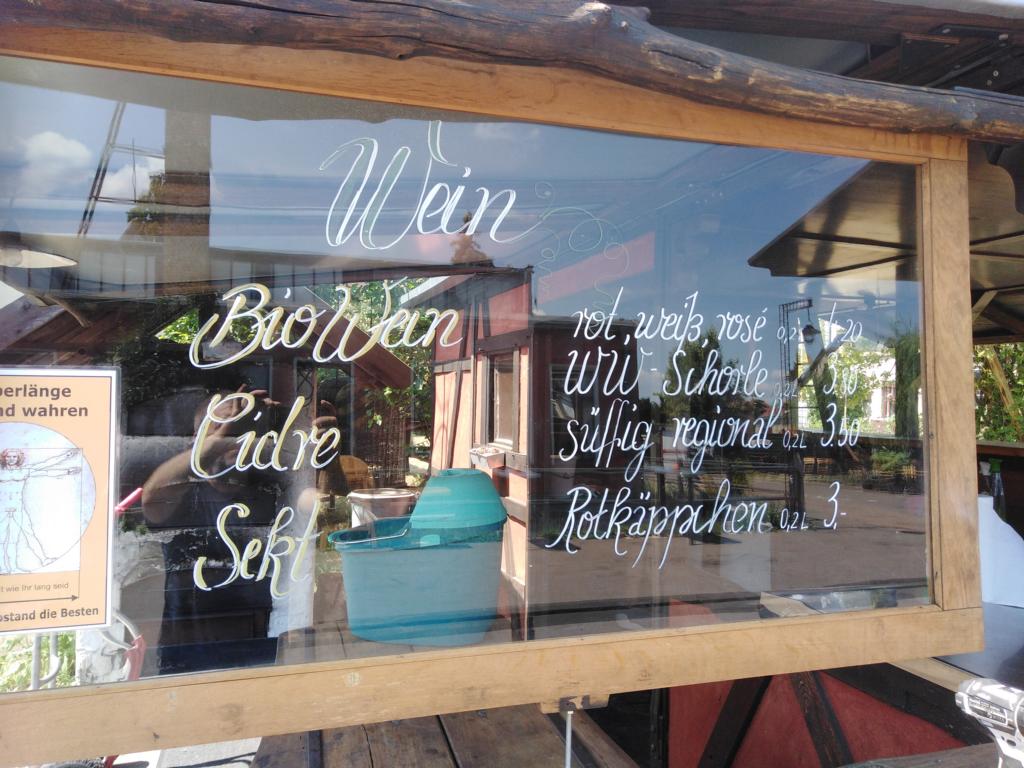 Wein
BioWein rot, weiß, rosé 0,2L 4,20
WW-Schorle 0,2L 3,80
Cidre süffig regional 0,2L 3,50
Sekt Rotkäppchen 0,2L 3,-
berlänge
nd wahren
t wie Ihr lang seid
bstand die Besten